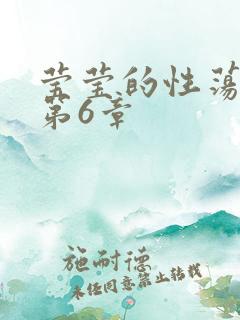 莹莹的性荡
第6章
施耐德
未经同意禁止转载